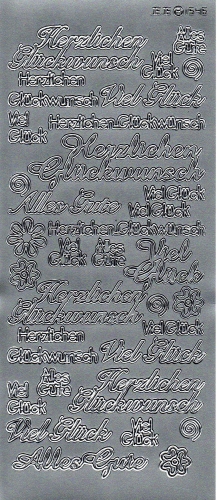 Herzlichen
Alles
Gute
Glückwunsch
Viel
Glück
Herzlichen
Glückwunsch
Viel Glück
Viel
Glück
Herzlichen Glückwunsch
Herzlichen
Glückwunsch
Viel Glück
Alles Gute
Viel Glück
Herzlichen Glückwunsch
Viel
Glück
Alles
Gute
Viel
Glück
Herzlichen
Glückwunsch
Viel Glück
Herzlichen
Glückwunsch
Viel Glück
Alles
Gute
Viel
Glück
Herzlichen
Glückwunsch
Viel Glück
Viel
Glück
Alles Gute